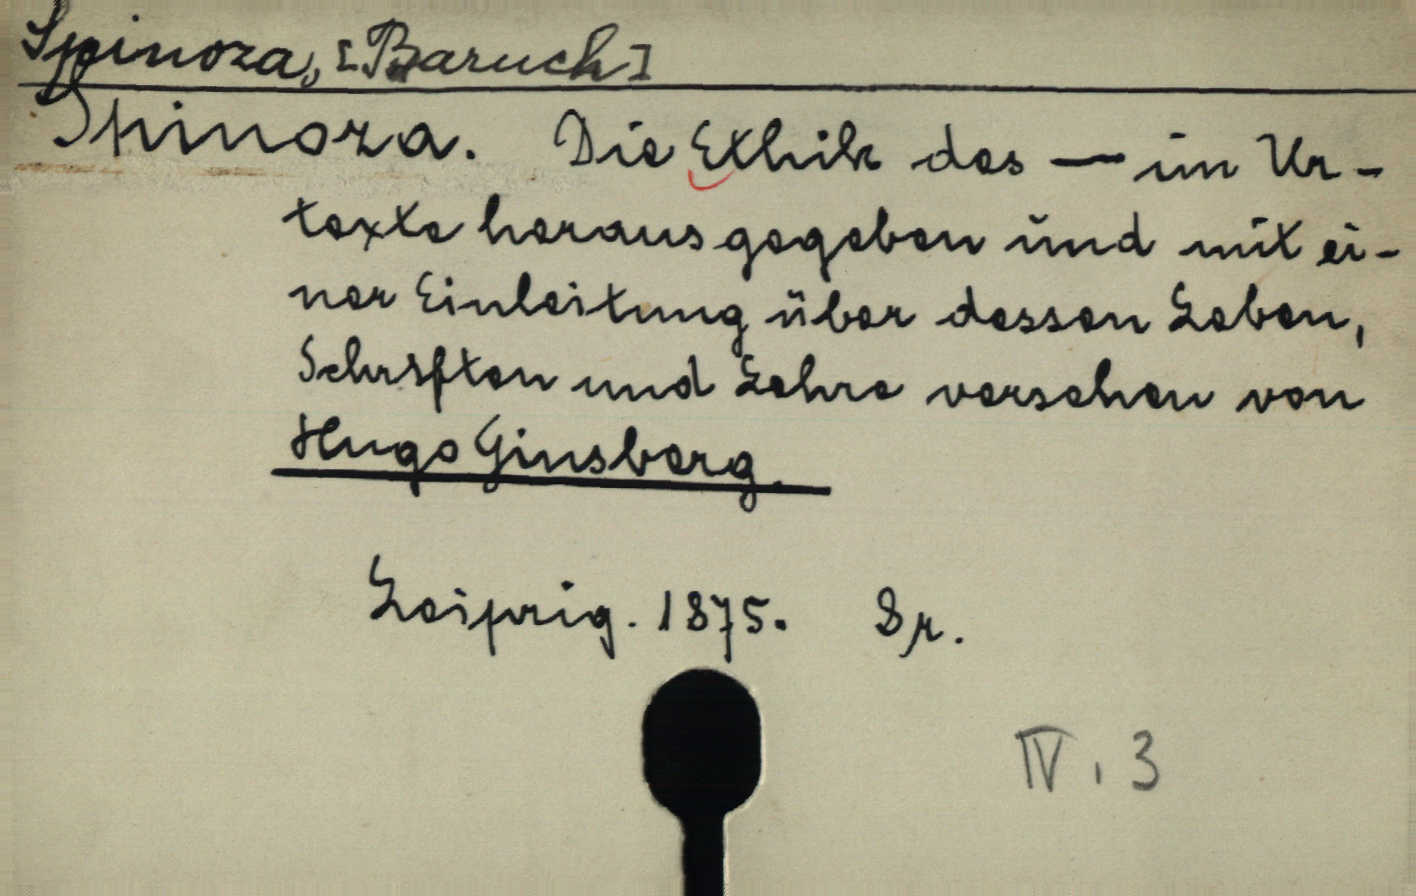 Spinoza, [Baruch]
Spinoza. Die Ethik des — im Ur-
texte herausgegeben und mit ei-
ner Einleitung über dessen Leben,
Schriften und Lehre versehen von
Hugo Ginsberg.
Leipzig. 1875. 8r.
IV. 3